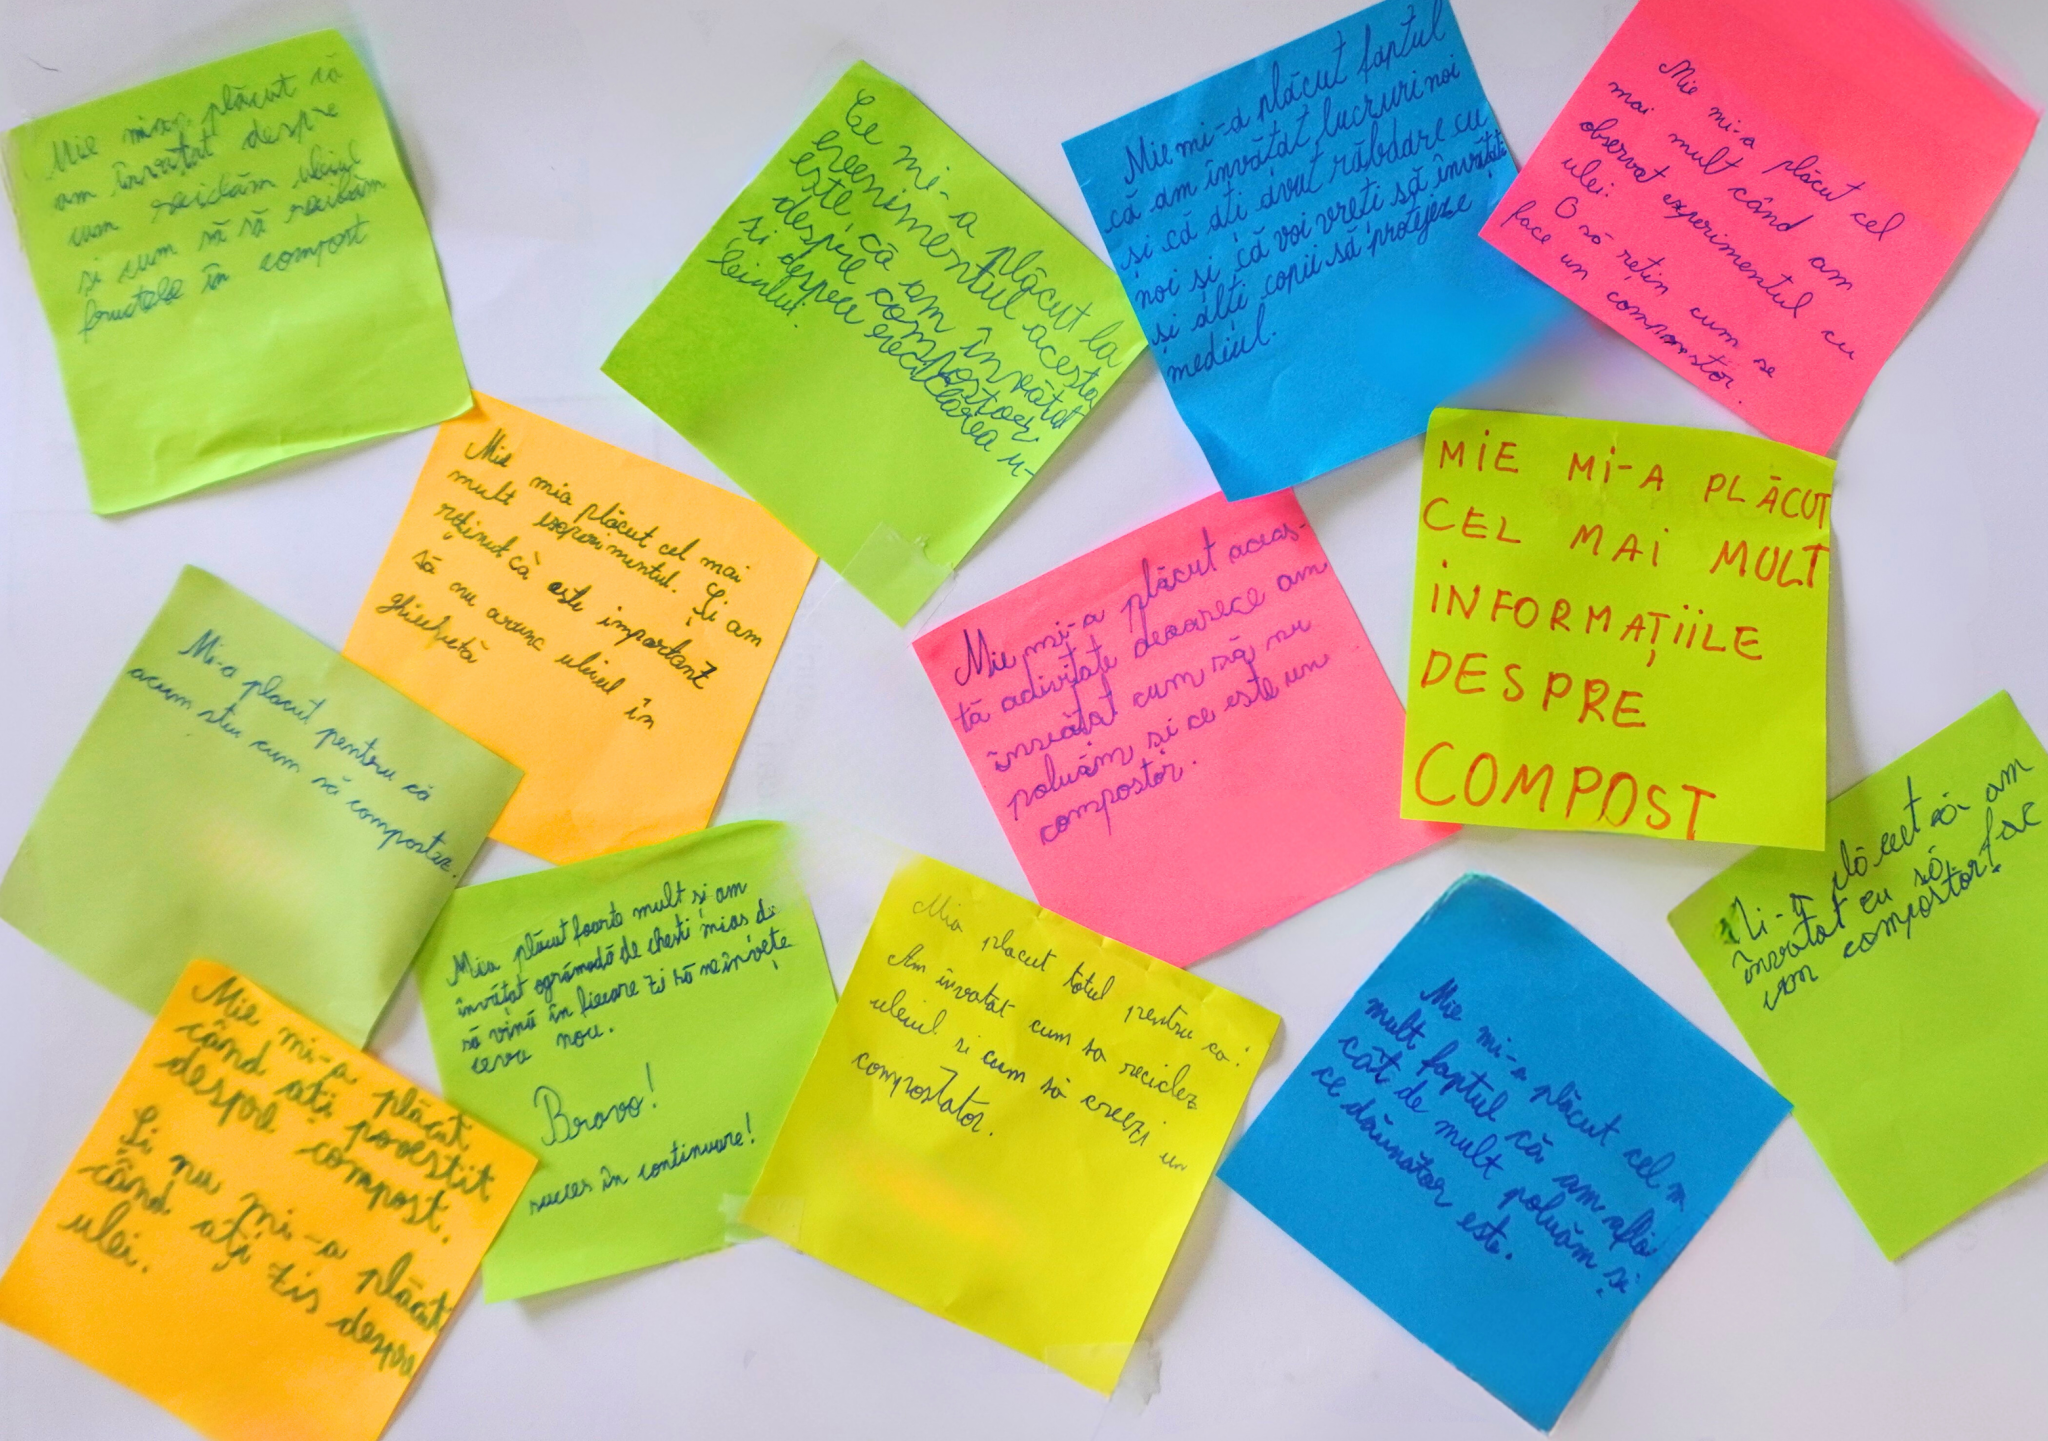 Mie mia plăcut că
am învatat despre
cum reciclăm uleiul
și cum să să
fructele în compost
Ce mi-a plăcut la
evenimentul acesta
este că am învățat
despre compostoer
și despre reciclarea u-
leiului.
Mie mi-a plăcut faptul
că am învățat lucruri noi
și că ati avut răbdare cu
noi și că voi vreti să învătati
și alti copii să protejeze
mediul.
Mie mi-a plăcut cel
mai mult când am
observat experimentul cu
ulei.
O să rețin cum se
face un compostor.
Mie mia plăcut cel mai
mult experimentul. Și am
reținut că este important
să nu arunc uleiul în
ghiuvetă
Mie mi-a plăcut aceas-
tă activitate deoarece am
învățat cum să nu
poluăm și ce este un
compostor.
MIE MI-A PLĂCUT
CEL MAI MULT
INFORMAȚIILE
DESPRE
COMPOST
Mi-a placut pentru că
acum stiu cum să compostez.
Mia plăcut foarte mult și am
învățat ogrămadă de chesti mias di
să vină în fiecare zi să neînvețe
ceva nou.
Bravo!
succes în continuare!
Mia placut totul pentru ca:
Am învatat cum sa reciclez
uleiul si cum să creezi un
compostator.
Mi-a plăcut că am
învatat eu să fac
un compostor.
Mie mi-a plăcut
când ați povestit
despre compost.
Și nu mi-a plăcut
când ați zis despre
ulei.
Mie mi-a plăcut cel m
mult faptul că am aflat
cât de mult poluăm și
ce dăunător este.